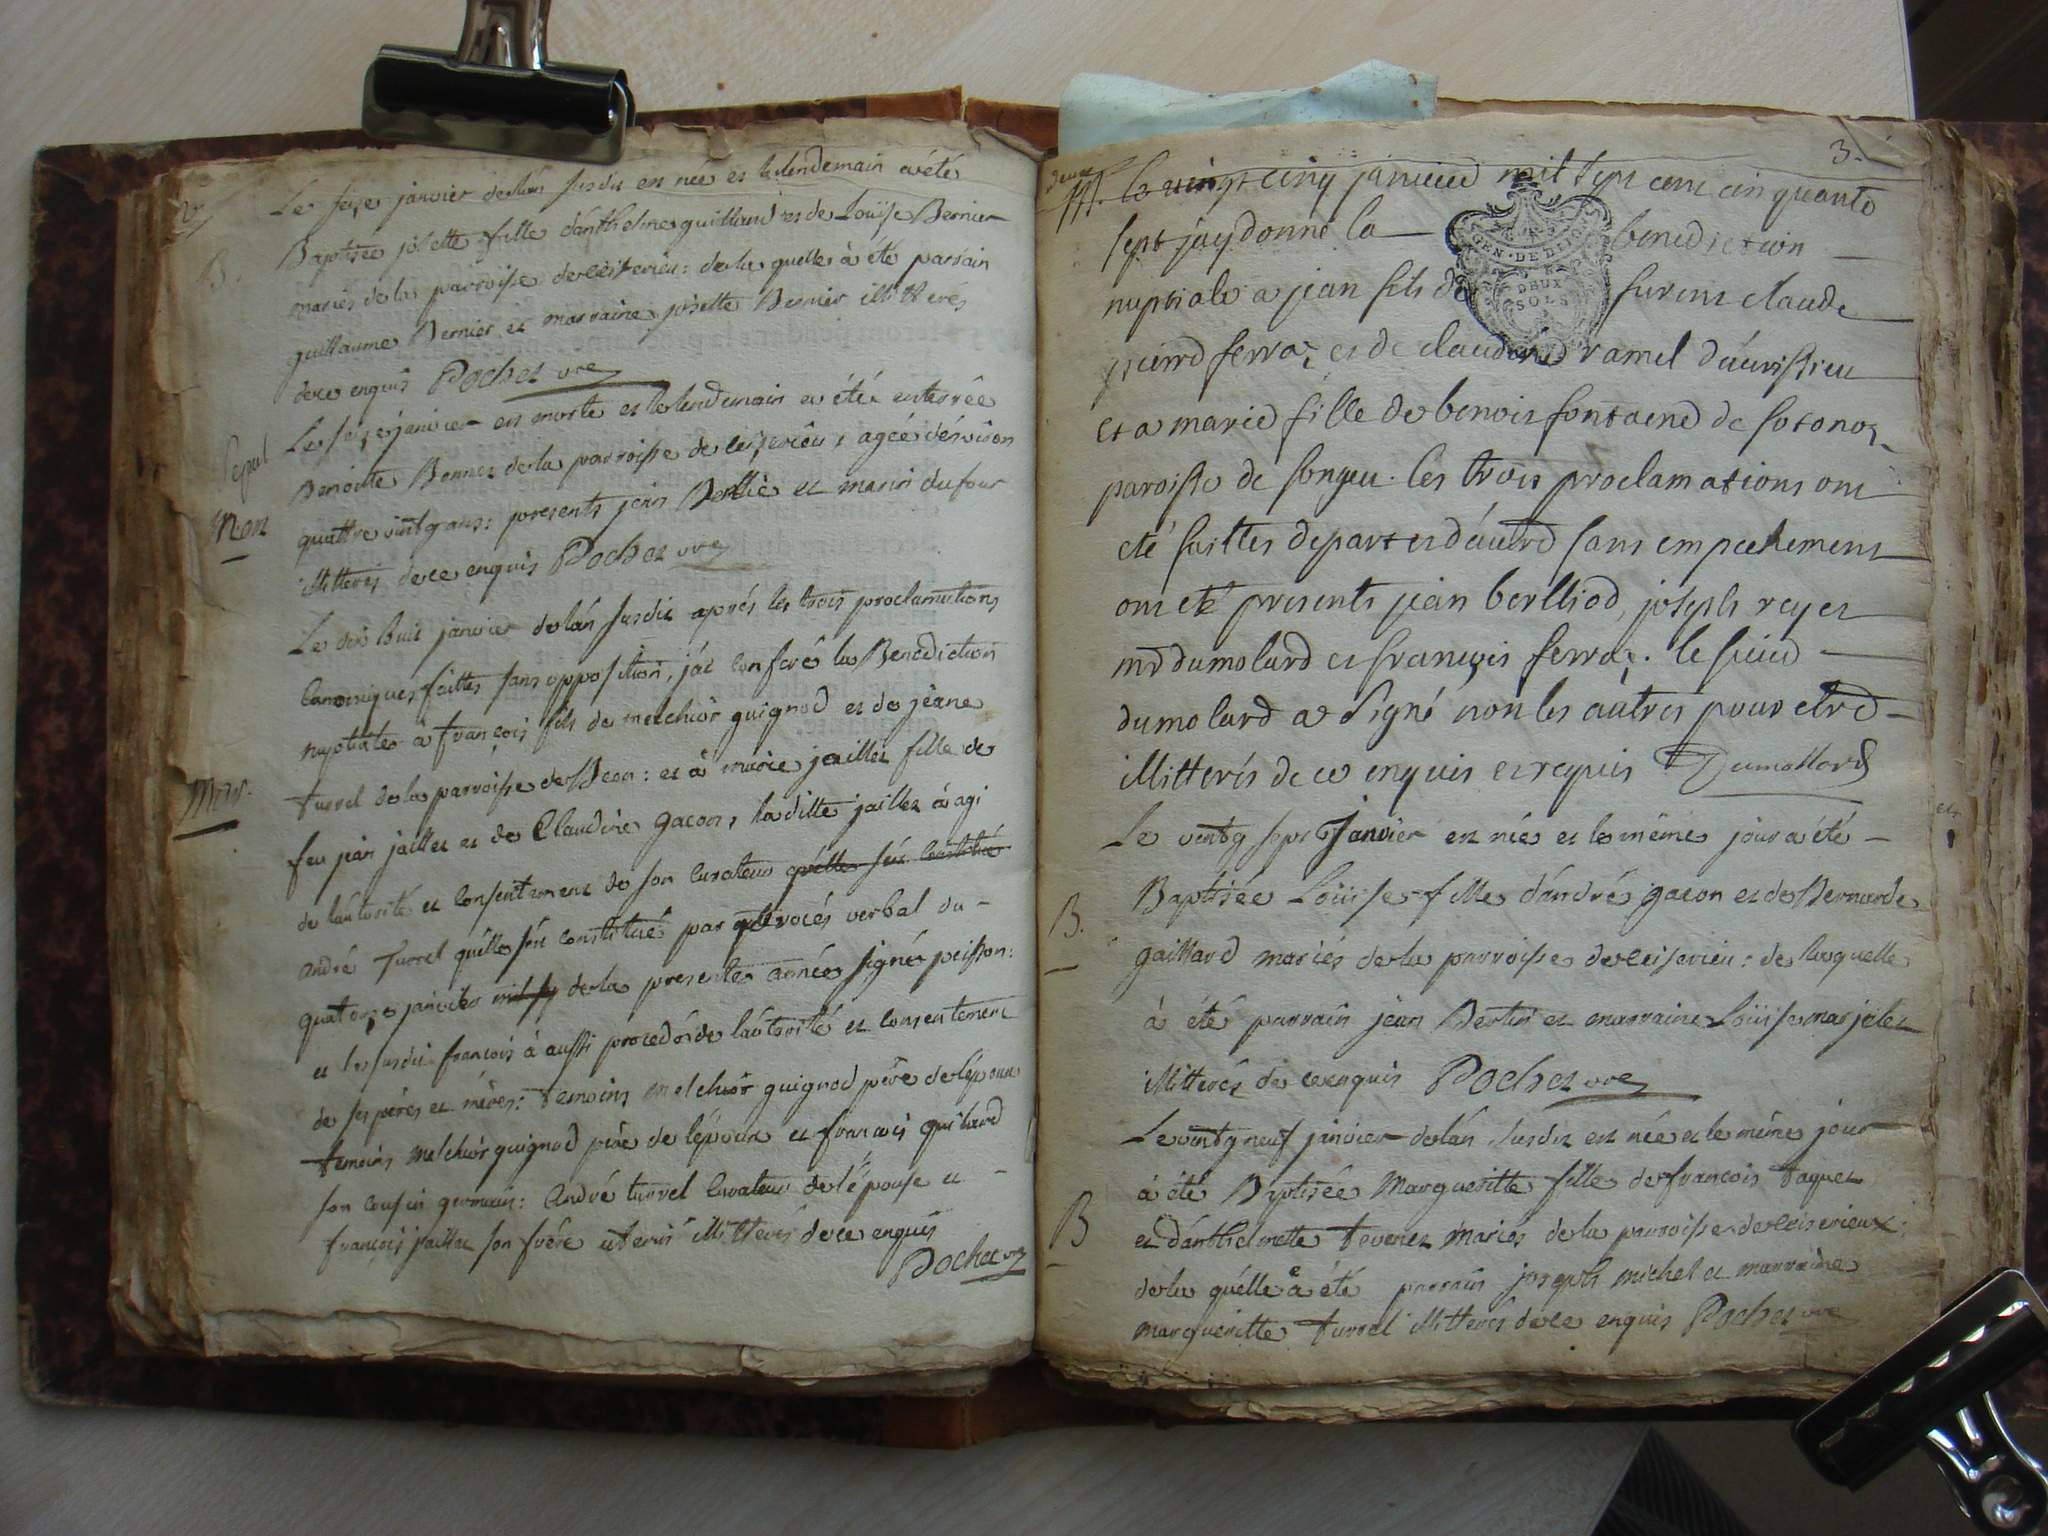 B.
Le seize janvier de lan susdit est née et le lendemain a été
Baptisée josette fille d'anthelme guilland et de Loüise Bernier
mariés de la parroisse de ceiserieu: de la quelle à été parrain
guillaume Bernier et marraine josette Bernier illitterés
de ce enquis Pochet vre
Sepul
Le seize janvier est morte et le lendemain a été enterrée
Benoite Bonnet de la parroisse de ceiserieu, agée d'environ
quattre vintg ans: presents jean Berllie et marin dufour
illitterés de ce enquis Pochet vre
Le dix huit janvier de lán susdit aprés les trois proclamations
canoniques faittes sans opposition, j'ái conferé la Benediction
nuptiale à françois fils de melchiór guignod et de jeane
Mar.
turrel de la parroisse de Beon: et à marie jaillet fille de
feu jean jaillet et de Claudine gacon, la ditte jaillet à agi
de láutorité et consentement de son curateur quélle sést constitué
andré turrel quélle sést constitué par procés verbal du -
quatorze janvier mil sept de la presente année signée peisson:
et le susdit françois à aussi procedé de láutorité et consentement
de ses péres et méres: temoins melchiór guignod pére de lépoux
temoins melchiór guignod pére de lépoux et françois guiland
son cousin germain: andré turrel curateur de lépouse et -
françois jaillet son frére uterin illitterés de ce enquis
Pochet vre
3.
deux
M. le vingt cinq janvier mil sept cent cinquante
sept jay donné la benediction
nuptiale a jean fils de furent claude
GEN·DE DIJON
DEUX
SOLS
pierre ferraz et de claudine ramel d'auvissieu
et a marie fille de benoit fontaene de sotonoz
paroisse de songeu. les trois proclamations ont
eté faittes de part et d'áutre sans empechement
ont eté presents jean berlliod, joseph reyet
mr dumolard et françois ferraz. le sieur
dumolard a signé non les aútres pour etre
illitterés de ce enquis et requis Dumollard
Le vintg sept Janvier est née et le même jour a été -
B.
Baptisée Loüise fille d'andré gacon et de Bernarde
gaillard mariés de la parroisse de ceiserieu: de laquelle
à été parrain jean Bertin et marraine Loüise marjolet
illitterés de ce enquis Pochet vre
Le vintg neuf janvier de lán susdit est née et le même jour
à été Baptisée Marguerite fille de françois taquet
B
et dánthelmette tevenet mariés de la parroisse de ceiserieux:
de la quélle à été parrain joseph michel et marraine
margueritte turrel illitterés de ce enquis Pochet vre